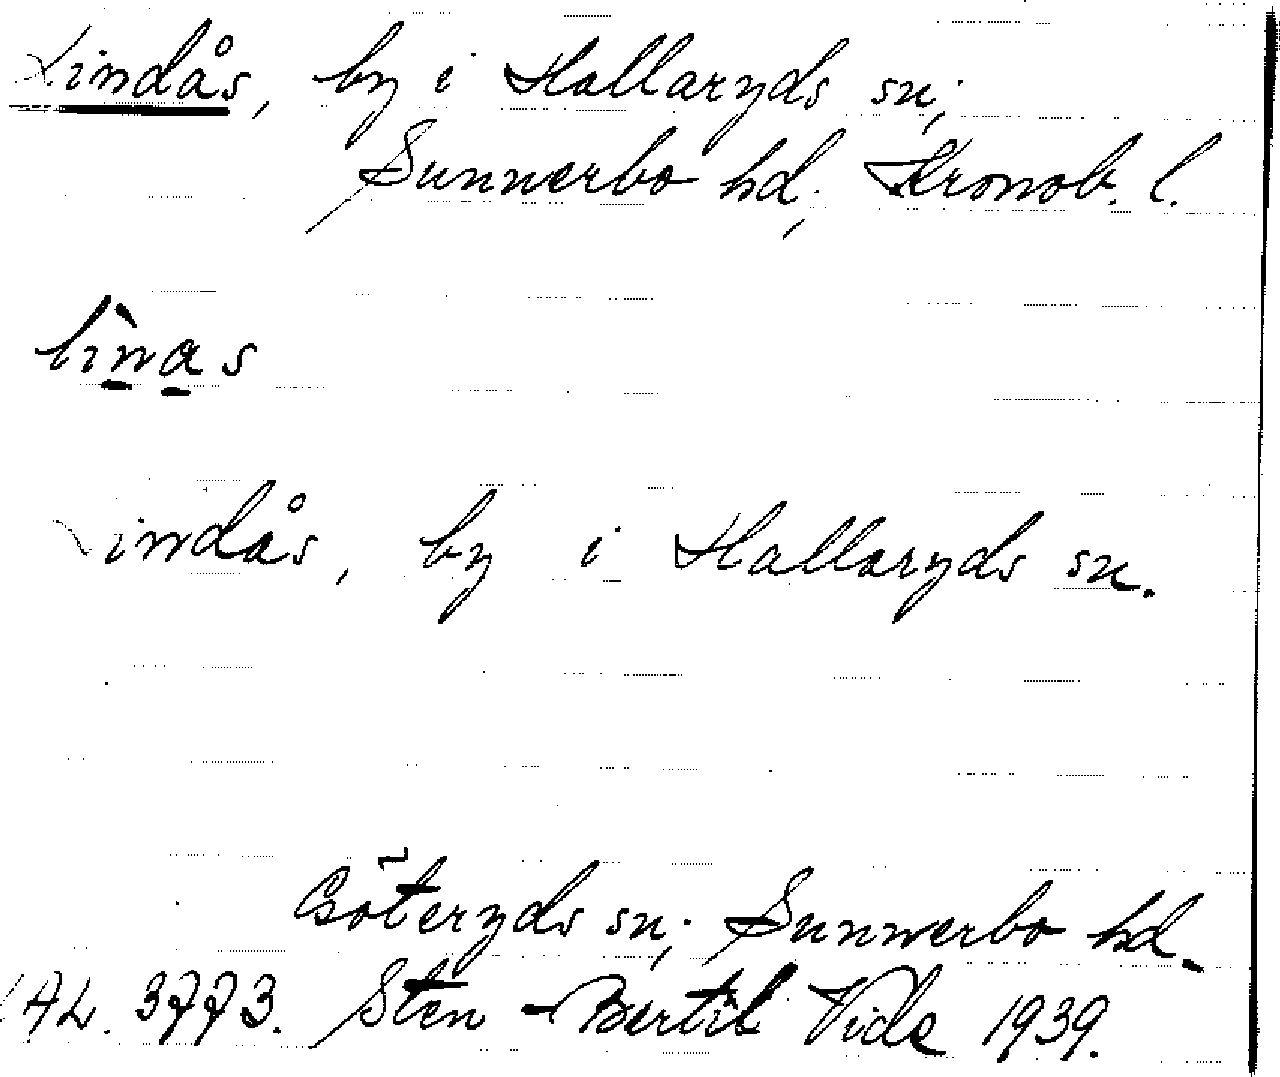 Lindås, by i Hallaryds sn,
Sunnerbo hd, Kronob. l.
lìnas
Lindås, by i Hallaryds sn.
Göteryds sn, Sunnerbo hd.
AL. 3773. Sten-Bertil Vide 1939.